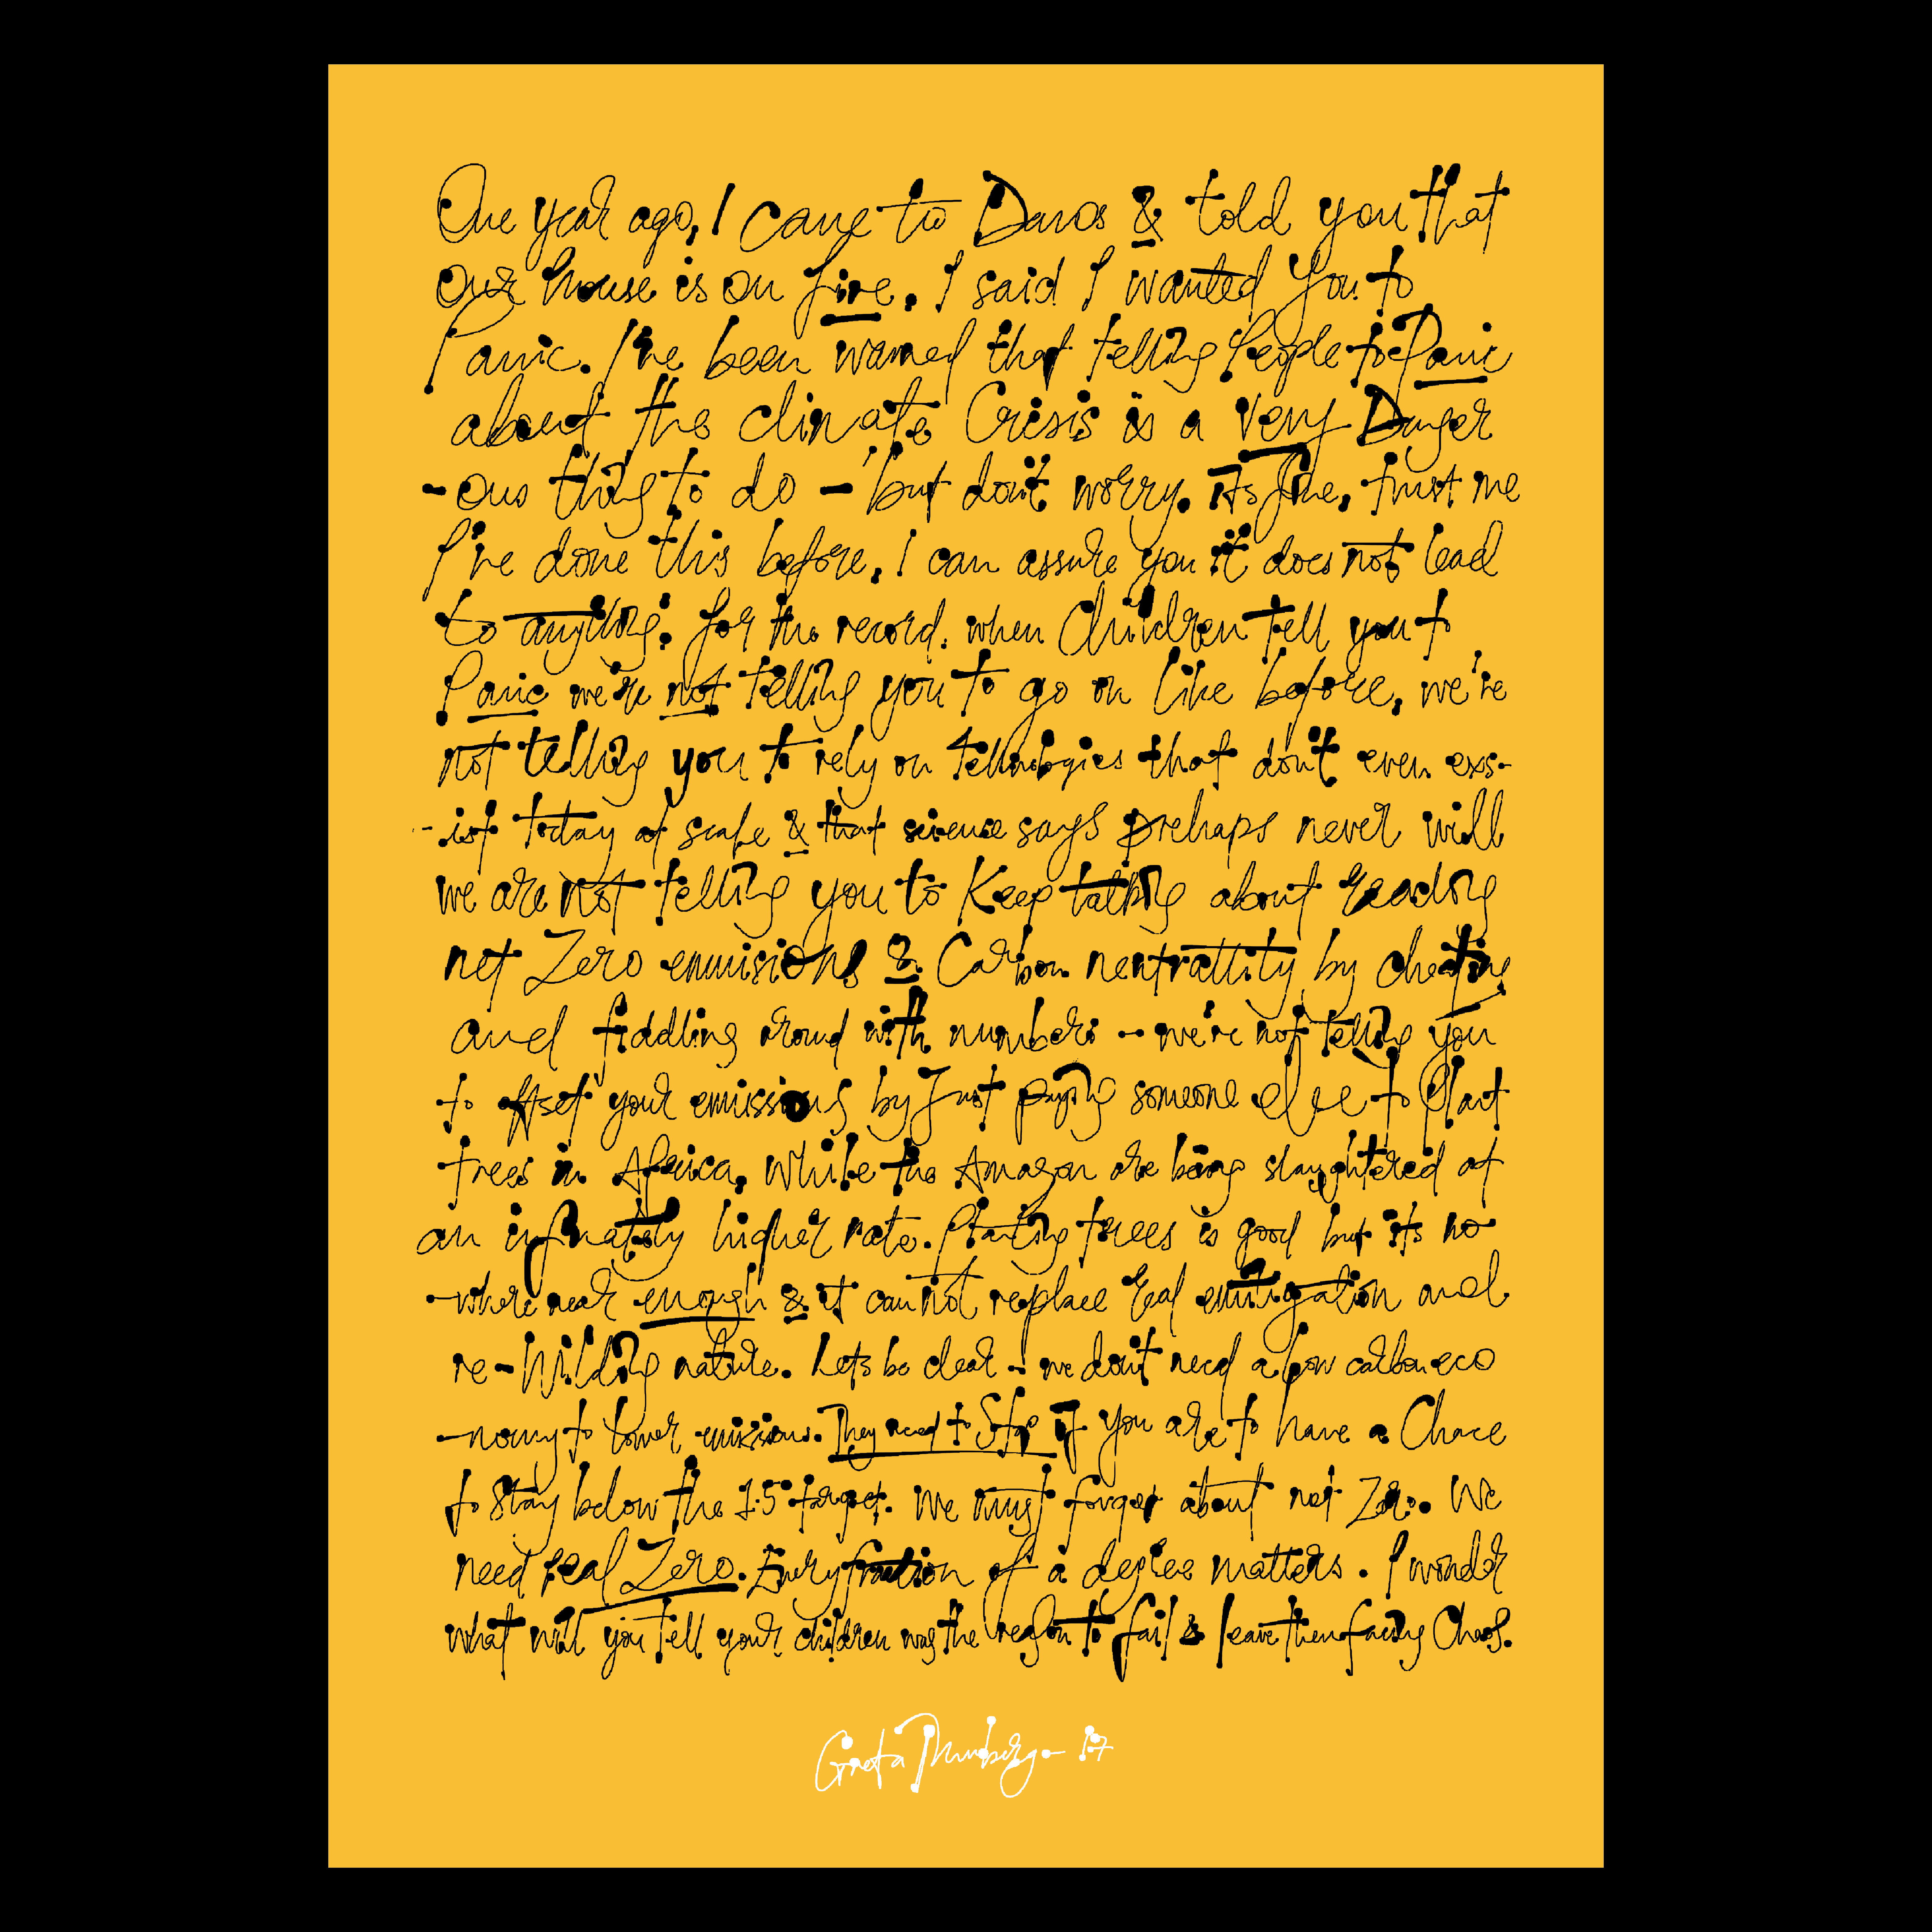 One year ago, I came to Davos & told you that
our house is on fire. I said I wanted you to
Panic. I've been warned that telling People to Panic
about the climate Crisis is a very Danger
-ous thing to do – but don't worry. its fine, trust me
I've done this before, I can assure you it does not lead
to anything. for the record, when Children tell you to
Panic we're not telling you to go on like before, we're
not telling you to rely on technologies that don't even exs-
-ist today at scale & that science says prehaps never will
we are not telling you to Keep talking about reading
net Zero emmisions & Carbon neutrattity by cheating
and fiddling around with numbers – we're not telling you
to offset your emissions by Just paying someone else to Plant
trees in Africa, While the Amazon are being slaughtered at
an infinately higher rate. Planting trees is good but its no
-where near enough & it cannot replace real emitigation and
re-Wilding nature. Lets be clear – we don't need a low carbon eco
-nomy to lower emissions. They need to Stop if you are to have a Chace
to stay below the 1.5 target. We must forget about net Zero. We
need real Zero. Every fraction of a degree matters. I wonder
what will you tell your children was the reason to fail & leave them facing Chaos.
Greta Thunberg – 17